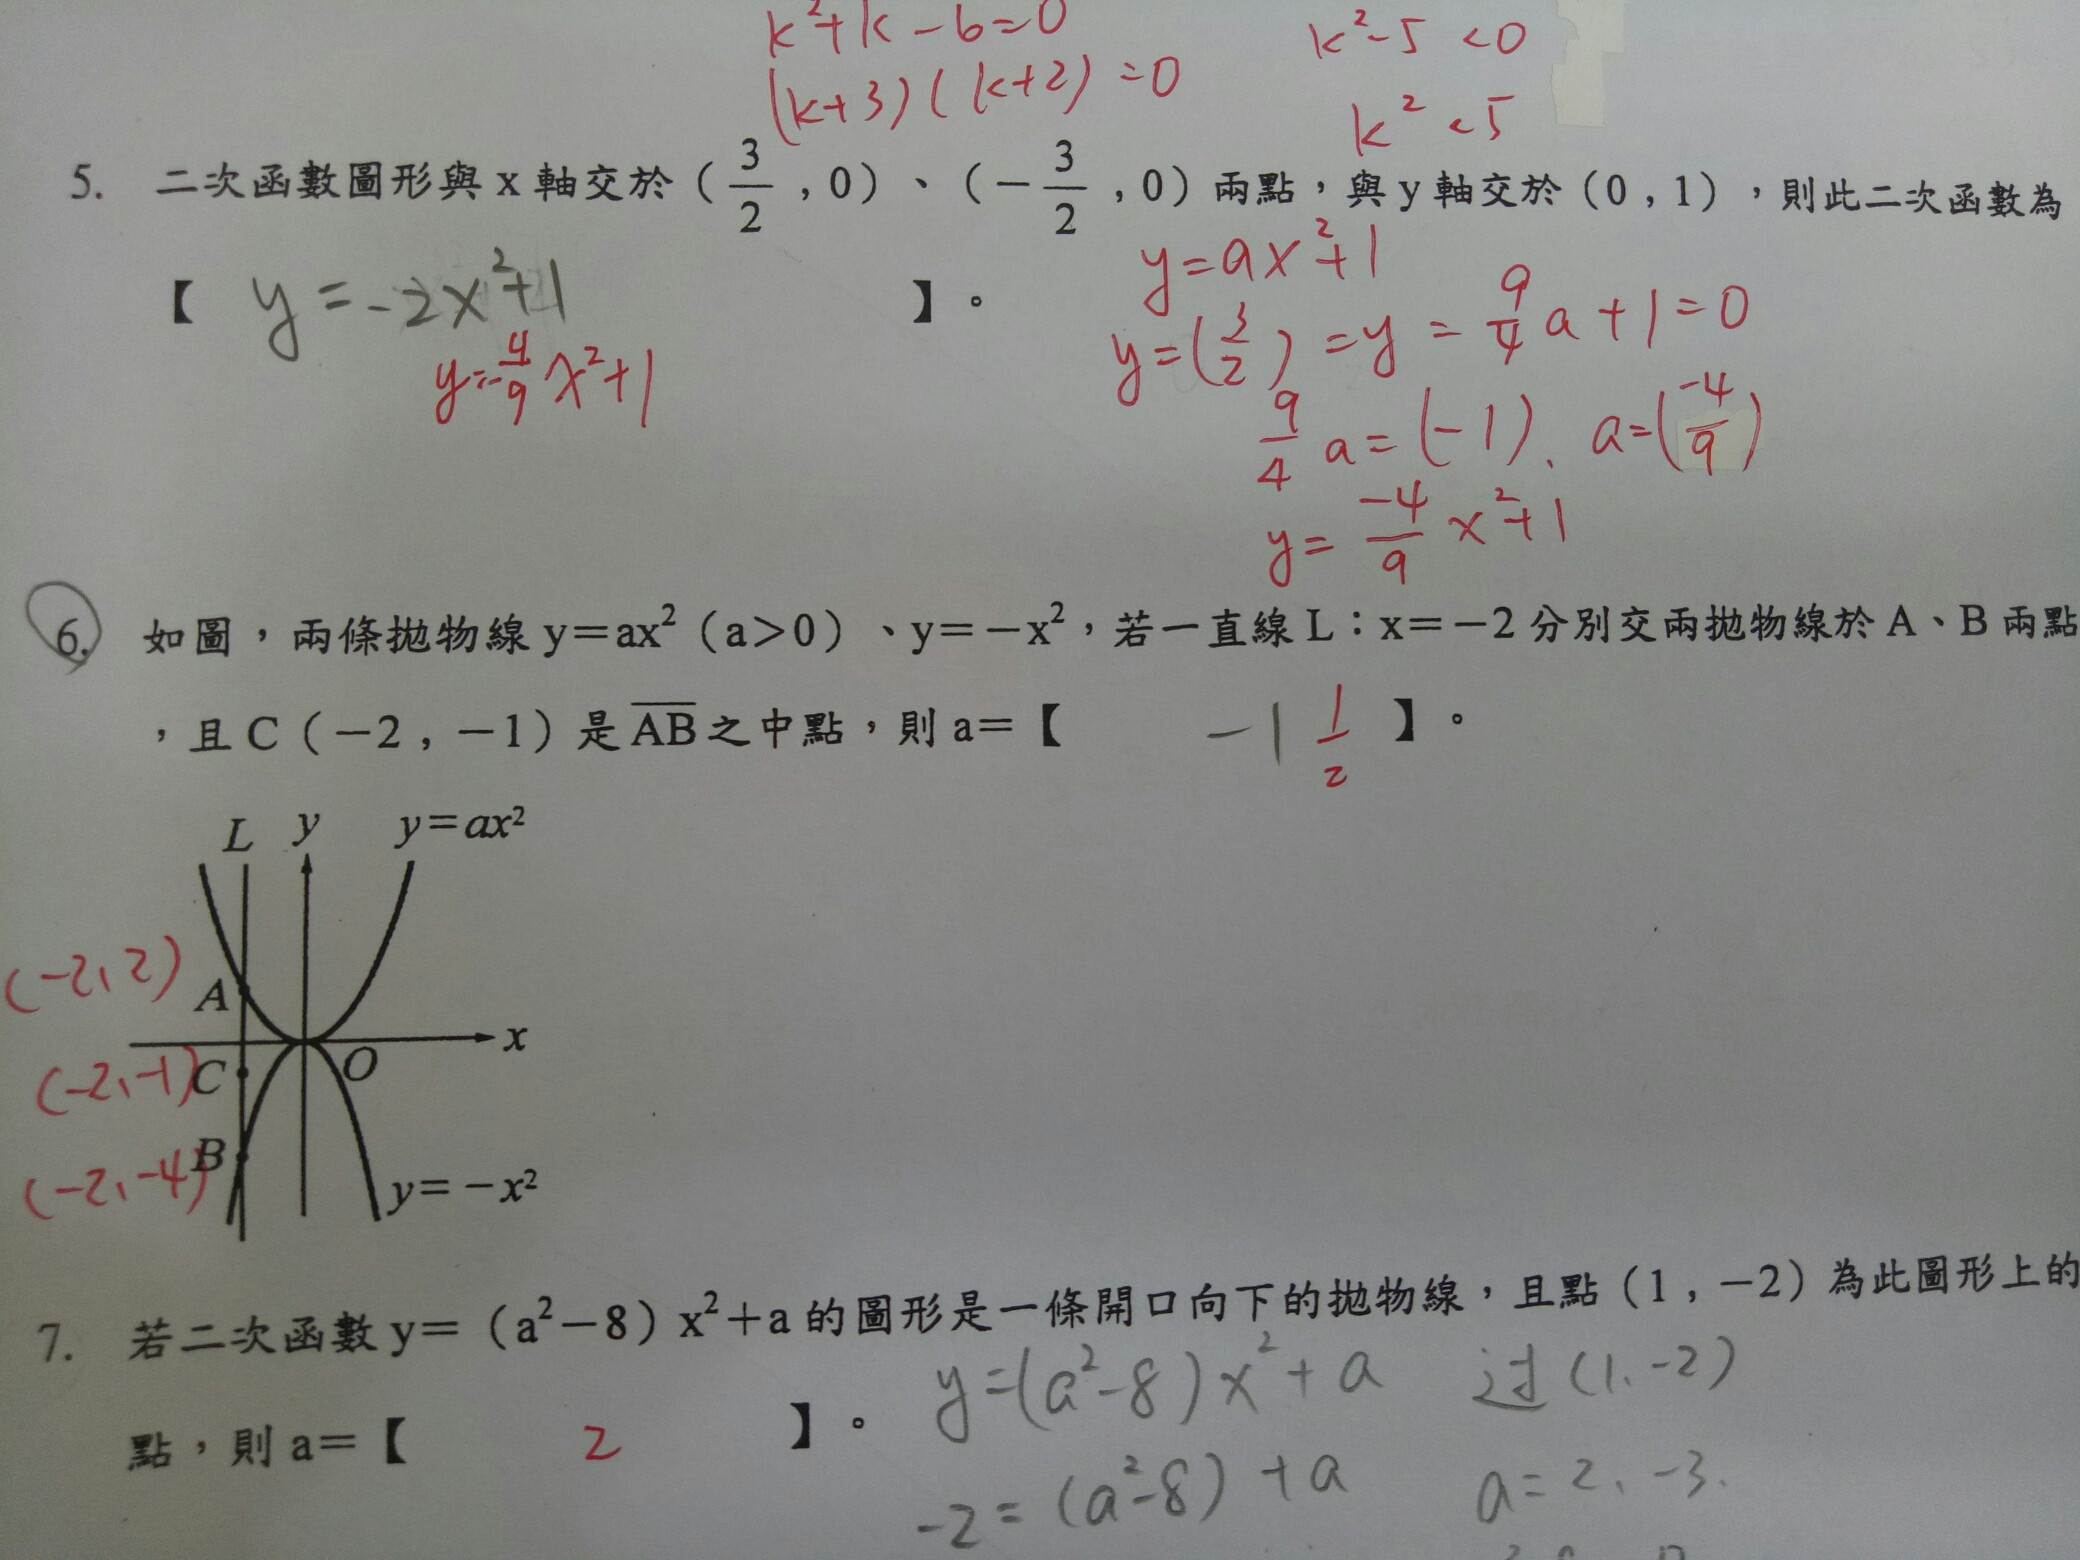 k²+k-6=0
(k+3)(k+2)=0
k²-5<0
k²<5
5. 二次函數圖形與 x 軸交於（3/2，0）、（－3/2，0）兩點，與 y 軸交於（0，1），則此二次函數為
【 y=-2x²+1 】。
y=-4/9x²+1
y=ax²+1
y=(3/2)=y=9/4a+1=0
9/4a=(-1)、a=(-4/9)
y=-4/9x²+1
6. 如圖，兩條拋物線 y＝ax²（a＞0）、y＝－x²，若一直線 L：x＝－2 分別交兩拋物線於 A、B 兩點
，且 C（－2，－1）是 AB 之中點，則 a＝【 -1 1/2 】。
L y y＝ax²
(-2、2) A
x
(-2、-1) C O
(-2、-4) B
y＝－x²
7. 若二次函數 y＝（a²－8）x²＋a 的圖形是一條開口向下的拋物線，且點（1，－2）為此圖形上的
點，則 a＝【 2 】。
y=(a²-8)x²+a 过(1、-2)
-2=(a²-8)+a a=2、-3.